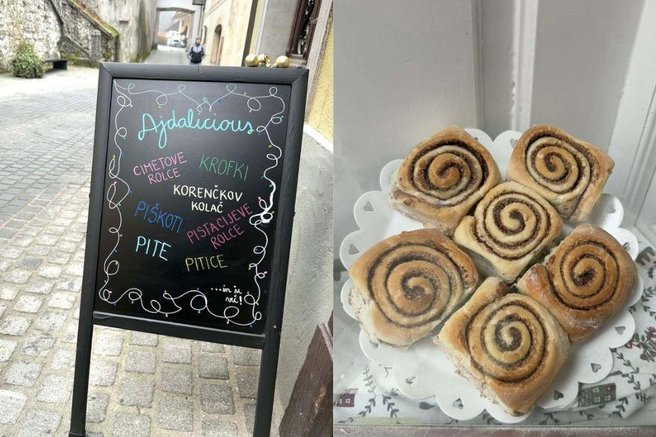 Ajdalicious
CIMETOVE
ROLCE
KROFKI
KORENČKOV
KOLAČ
PIŠKOTI
PISTACIJEVE
ROLCE
PITE
PITICE
...in še
več!